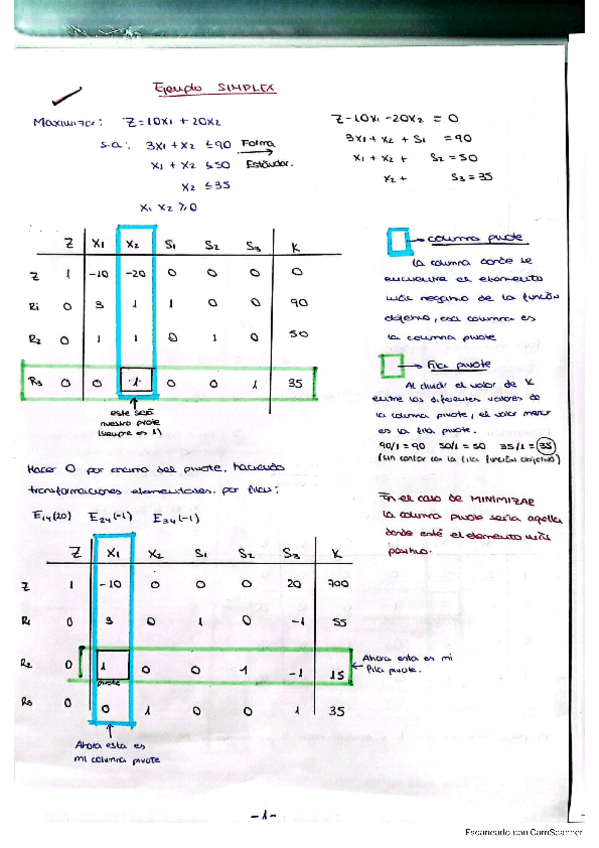 Ejemplo SIMPLEX
Maximizar: Z=10X1 + 20X2
s.a: 3X1+X2 ≤90 Forma
X1 + X2 ≤50 Estándar.
X2 ≤35
X1 X2 ≥0
Z-10X1-20X2 = 0
3X1+X2 + S1 = 90
X1 + X2 + S2 = 50
X2 + S3 = 35
Z X1 X2 S1 S2 S3 K
Z 1 -10 -20 0 0 0 0
R1 0 3 1 1 0 0 90
R2 0 1 1 0 1 0 50
R3 0 0 1 0 0 1 35
este será
nuestro pivote
(siempre es 1)
→ columna pivote
la columna donde se
encuentre el elemento
más negativo de la función
objetivo, esa columna es
la columna pivote
→ Fila pivote
Al dividir el valor de K
entre los diferentes valores de
la columna pivote, el valor menor
es la fila pivote.
90/1=90 50/1=50 35/1=35
(sin contar con la fila función objetivo)
Hacer 0 por encima del pivote, haciendo
transformaciones elementales. por filas:
E14(20) E24(-1) E34(-1)
En el caso de MINIMIZAR
la columna pivote sería aquella
donde esté el elemento más
positivo.
Z X1 X2 S1 S2 S3 K
Z 1 -10 0 0 0 20 700
R1 0 3 0 1 0 -1 55
R2 0 1 0 0 1 -1 15
pivote
R3 0 0 1 0 0 1 35
Ahora esta es mi
fila pivote.
Ahora esta es
mi columna pivote
-1-
Escaneado con CamScanner